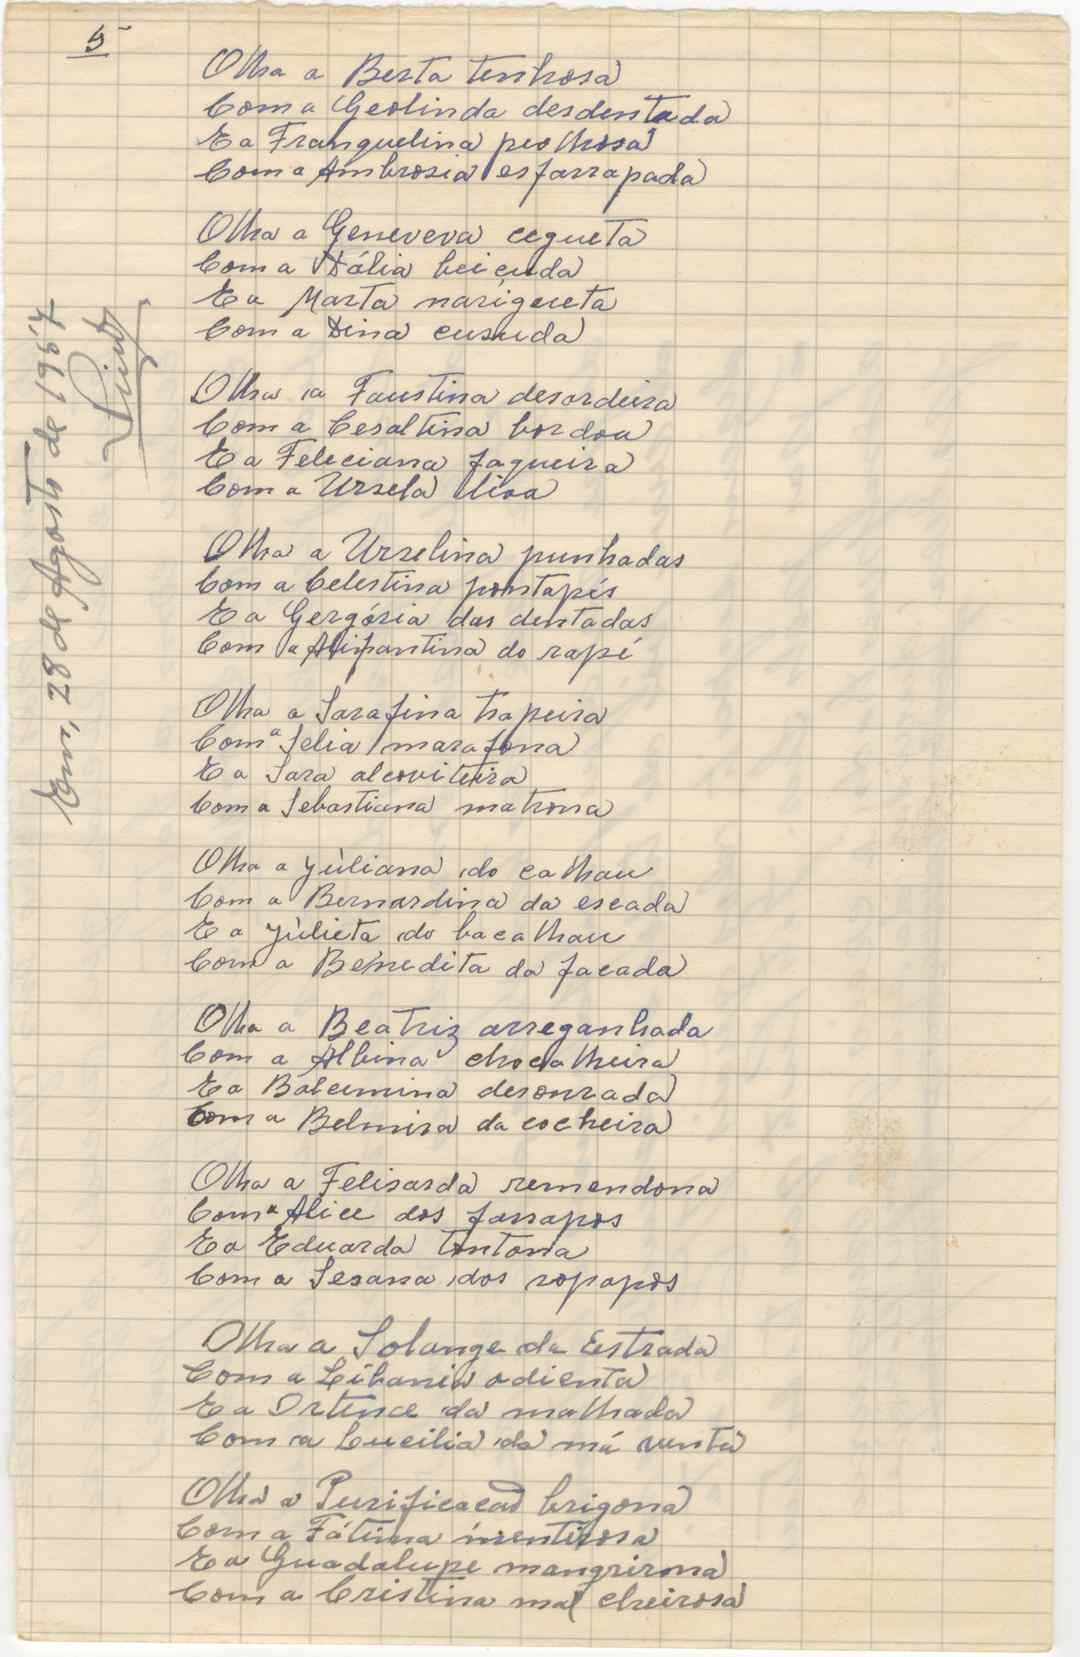 5
Olha a Berta tenhosa
Com a Geolinda desdentada
E a Franquelina piolhosa
Com a Ambrosia esfarrapada
Olha a Geneveva cegueta
Com a Dália beicuda
E a Marta narigueta
Com a Dina cusuda
Olha a Faustina desordeira
Com a Cesaltina bordoa
E a Feleciana faqueira
Com a Ursela
Olha a Urselina punhadas
Com a Celestina pontapés
E a Gergória das dentadas
Com a Alifantina do rapé
Olha a Sarafina trapeira
Com a Selia marafona
E a Sara alcoviteira
Com a Sebastiana matrona
Olha a Júliana do calhau
Com a Bernardina da escada
E a Júlieta do bacalhau
Com a Benedita da facada
Olha a Beatriz arreganhada
Com a Albina chocalheira
E a Balcemina desonrada
Com a Belmira da cocheira
Olha a Felisarda remendona
Com a Alice dos farrapos
E a Eduarda tontona
Com a Sesana dos sopapos
Olha a Solange da Estrada
Com a Libania odienta
E a Ortence da malhada
Com a Lucilia da má venta
Olha a Purificacão brigona
Com a Fátima mentirosa
E a Guadalupe mangrirona
Com a Cristina mal cheirosa
Em, 28 de Agosto de 1957